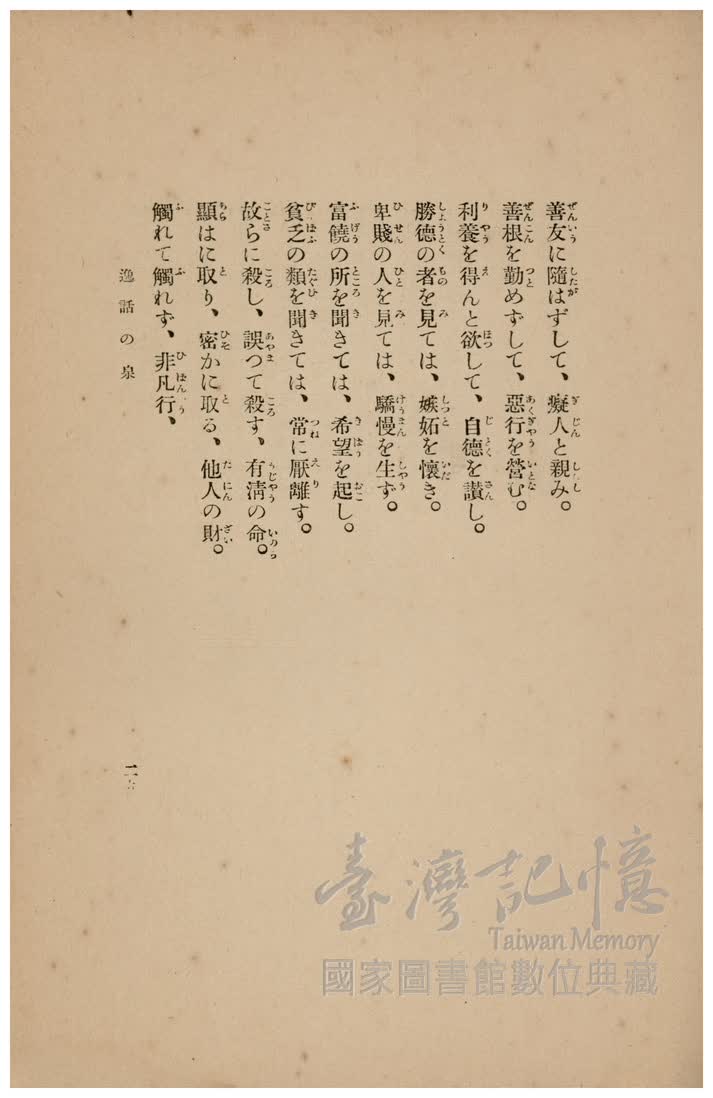 善友に隨はずして、癡人と親み。
善根を勤めずして、惡行を營む。
利養を得んと欲して、自德を讃し。
勝德の者を見ては、嫉妬を懷き。
卑賤の人を見ては、驕慢を生ず。
富饒の所を聞きては、希望を起し。
貧乏の類を聞きては、常に厭離す。
故らに殺し、誤つて殺す、有淸の命。
顯はに取り、密かに取る、他人の財。
觸れて觸れず、非凡行、
逸話の泉
臺灣記憶
Taiwan Memory
國家圖書館數位典藏